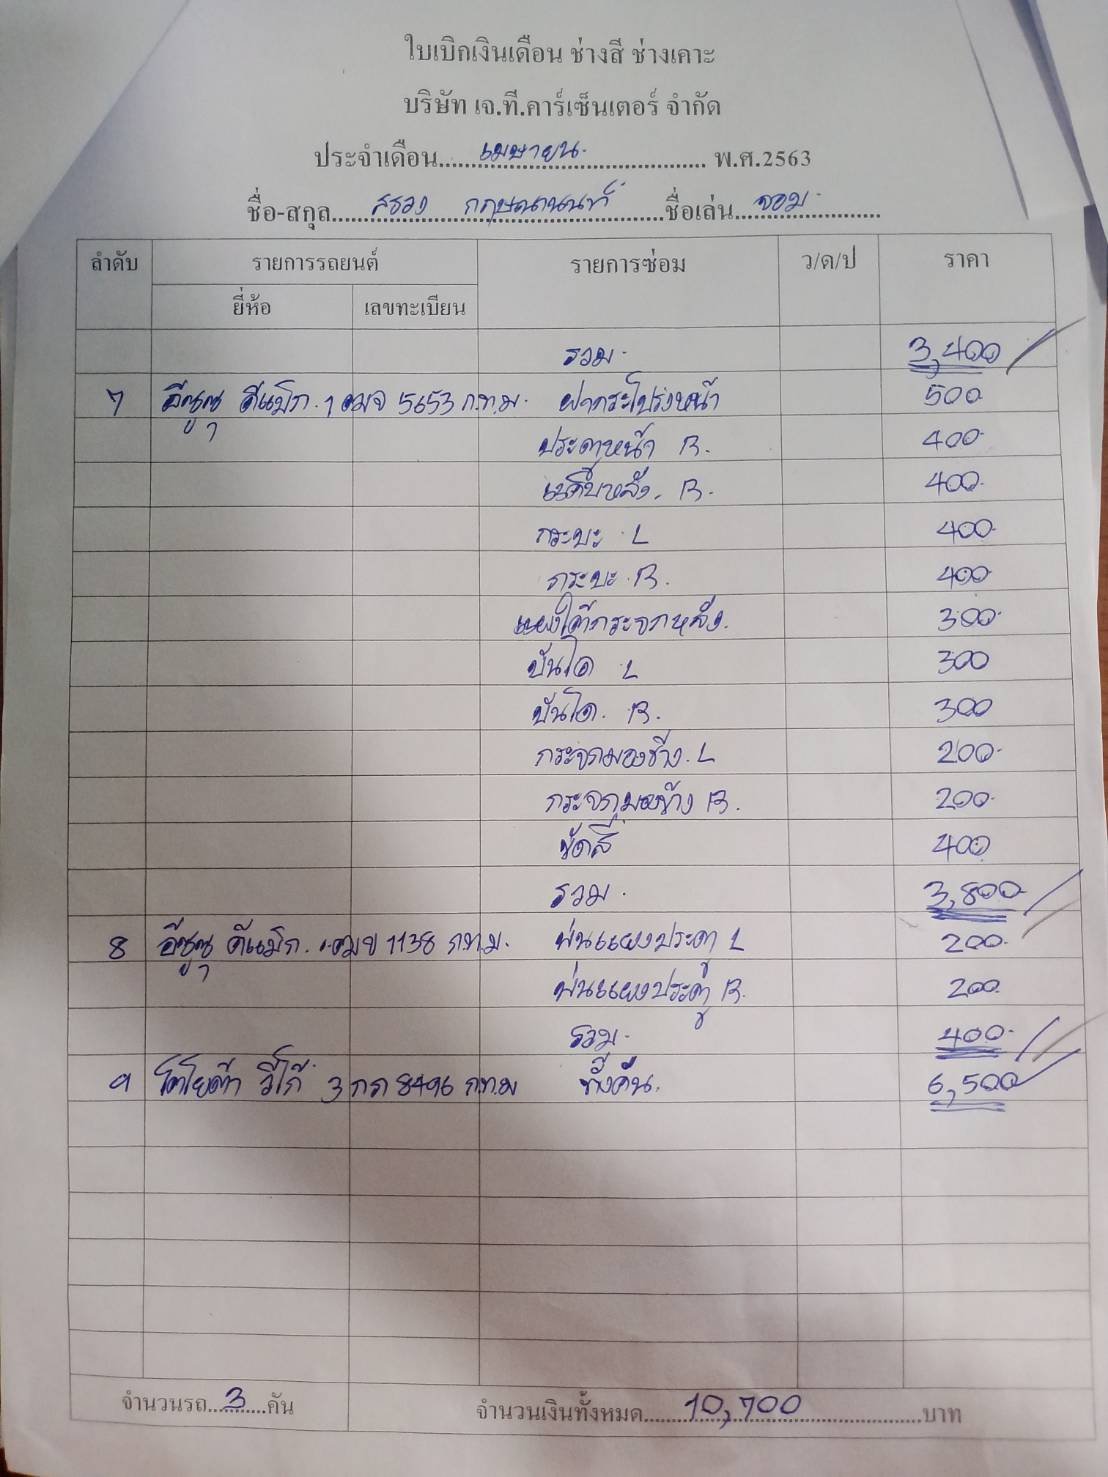 ใบเบิกเงินเดือน ช่างสี ช่างเคาะ
บริษัท เจ.ที.คาร์เซ็นเตอร์ จำกัด
ประจำเดือน.....เมษายน.....พ.ศ.2563
ชื่อ-สกุล..... กฤษณานนท์.....ชื่อเล่น.....จอม.....
ลำดับ รายการรถยนต์ รายการซ่อม ว/ด/ป ราคา
ยี่ห้อ เลขทะเบียน
รวม. 3,400
7 อีซูซุ ดีแม็ก. 1 ฒจ 5653 ก.ท.ม. ฝากระโปรงหน้า 500
ประตูหน้า R. 400
แค๊บหลัง. R. 400
กระบะ L 400
กระบะ R. 400
แผงใต้กระจกหลัง. 300
บันได L 300
บันได. R. 300
กระจกมองข้าง. L 200
กระจกมองข้าง R. 200
ขัดสี 400
รวม. 3,800
8 อีซูซุ ดีแม็ก. 1138 ก.ท.ม. พ่นแผงประตู L 200
พ่นแผงประตู R. 200
รวม. 400
9 โตโยต้า วีโก้ 3 กภ 8496 ก.ท.ม ทั้งคัน. 6,500
จำนวนรถ...3...คัน จำนวนเงินทั้งหมด.....10,700.....บาท